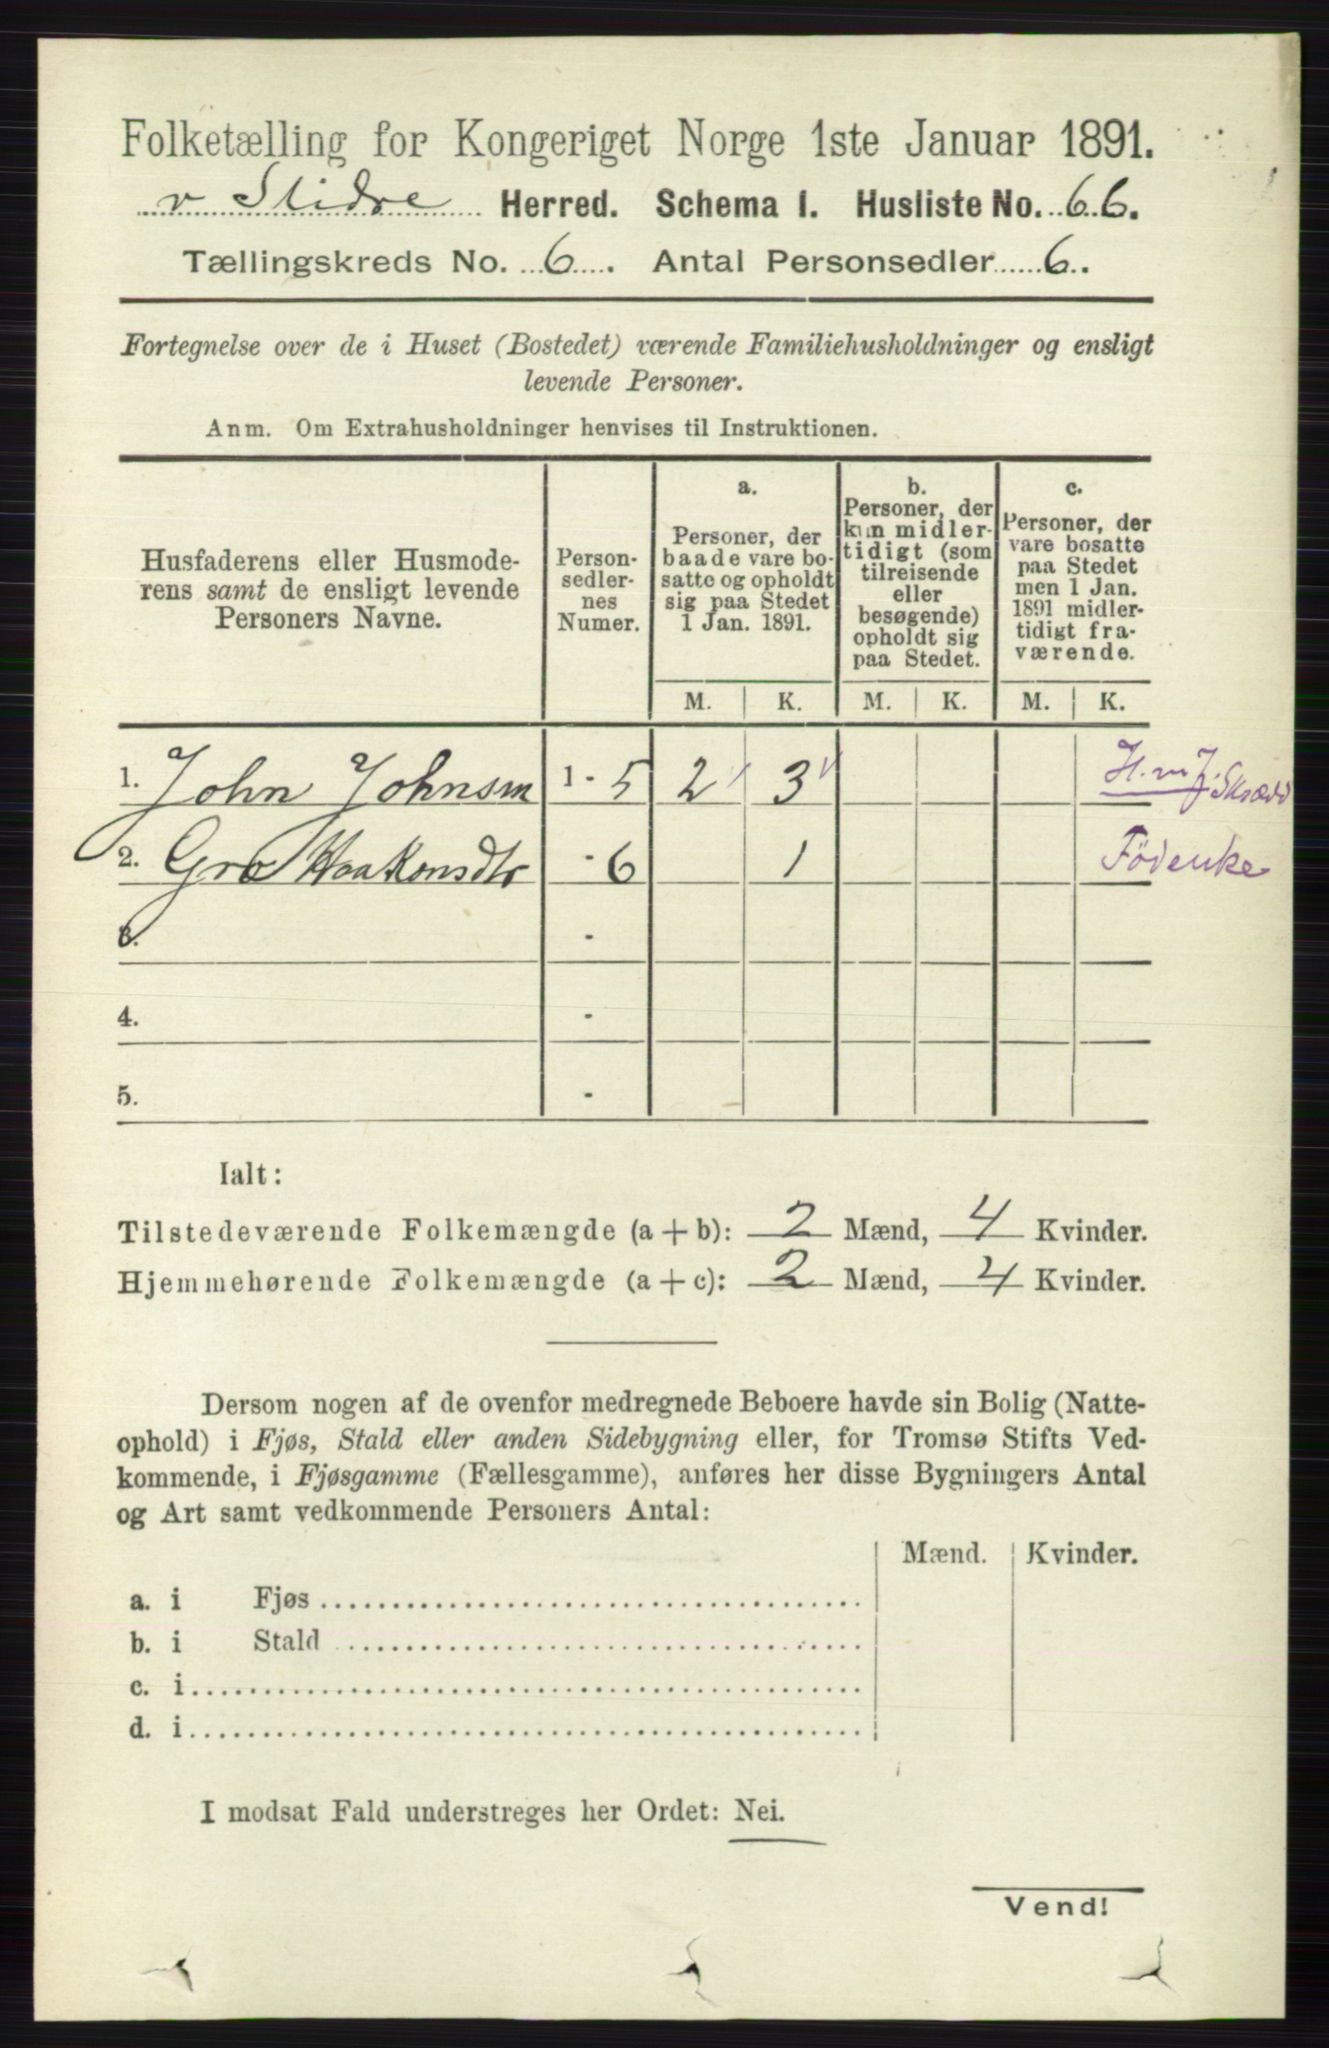 Folketælling for Kongeriget Norge 1ste Januar 1891.
v Slidre Herred. Schema I. Husliste No. 66.
Tællingskreds No. 6. Antal Personsedler 6.
Fortegnelse over de i Huset (Bostedet) værende Familiehusholdninger og ensligt
levende Personer.
Anm. Om Extrahusholdninger henvises til Instruktionen.
Husfaderens eller Husmode-
rens samt de ensligt levende
Personers Navne.
Person-
sedler-
nes
Numer.
a.
Personer, der
baade vare bo-
satte og opholdt
sig paa Stedet
1 Jan. 1891.
b.
Personer, der
kun midler-
tidigt (som
tilreisende
eller
besøgende)
opholdt sig
paa Stedet.
c.
Personer, der
vare bosatte
paa Stedet
men 1 Jan.
1891 midler-
tidigt fra-
værende.
M. K. M. K. M. K.
1. John Johnsen 1 - 5 2 3 H. m J. Skrædd
2. Gro Haakonsdtr - 6 1 Föderike
3. -
4. -
5. -
Ialt:
Tilstedeværende Folkemængde (a + b): 2 Mænd, 4 Kvinder.
Hjemmehørende Folkemængde (a + c): 2 Mænd, 4 Kvinder.
Dersom nogen af de ovenfor medregnede Beboere havde sin Bolig (Natte-
ophold) i Fjøs, Stald eller anden Sidebygning eller, for Tromsø Stifts Ved-
kommende, i Fjøsgamme (Fællesgamme), anføres her disse Bygningers Antal
og Art samt vedkommende Personers Antal:
Mænd. Kvinder.
a. i Fjøs
b. i Stald
c. i
d. i
I modsat Fald understreges her Ordet: Nei.
Vend!